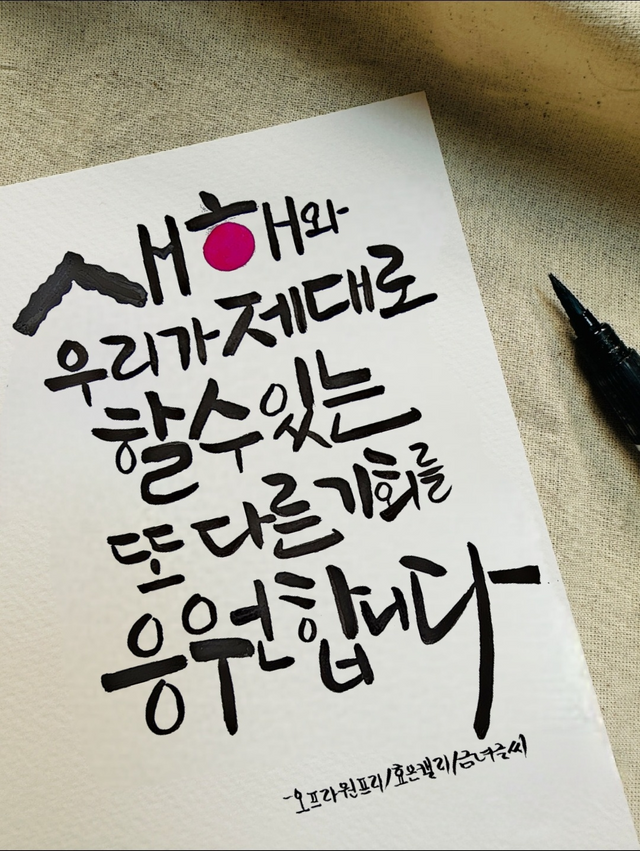 새해와
우리가 제대로
할 수 있는
또 다른 기회를
응원합니다
-오프라윈프리/효온캘리/금녀글씨